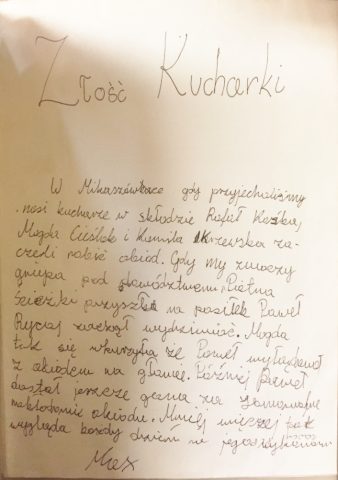 Złość Kucharki
W Mikaszówkace gdy przyjechaliśmy
nasi kucharze w składzie Rafał Kaźka,
Magda Cieślok i Kamila Krzewska za-
czeli robić obiad. Gdy my zmoczy
grupa pod dowództwem Piętna
ścieżki przyszła na posiłek Paweł
Ryciaj zaczął wydziwiać. Magda
tak się wkurzyła że Paweł wylądował
z obiadem na głowie. Później Paweł
dostał jeszcze
obiadu. Mniej więcej tak
wygląda każdy dzień w
Max